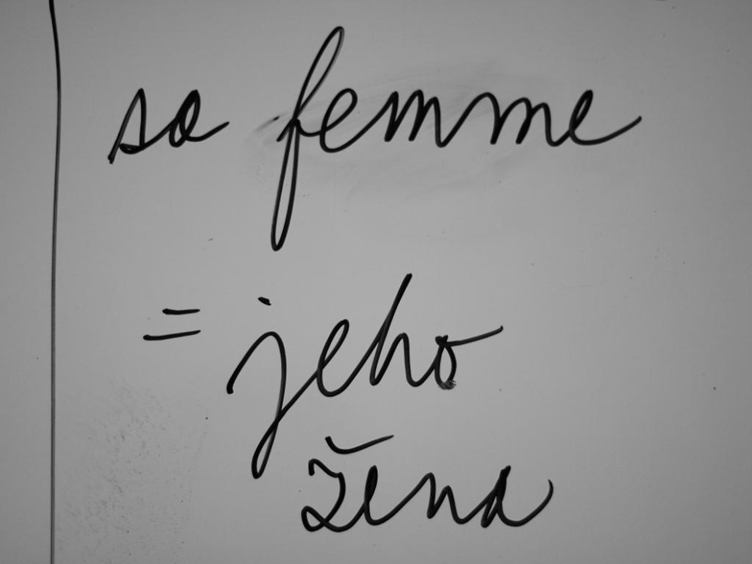 sa femme
= jeho
žena